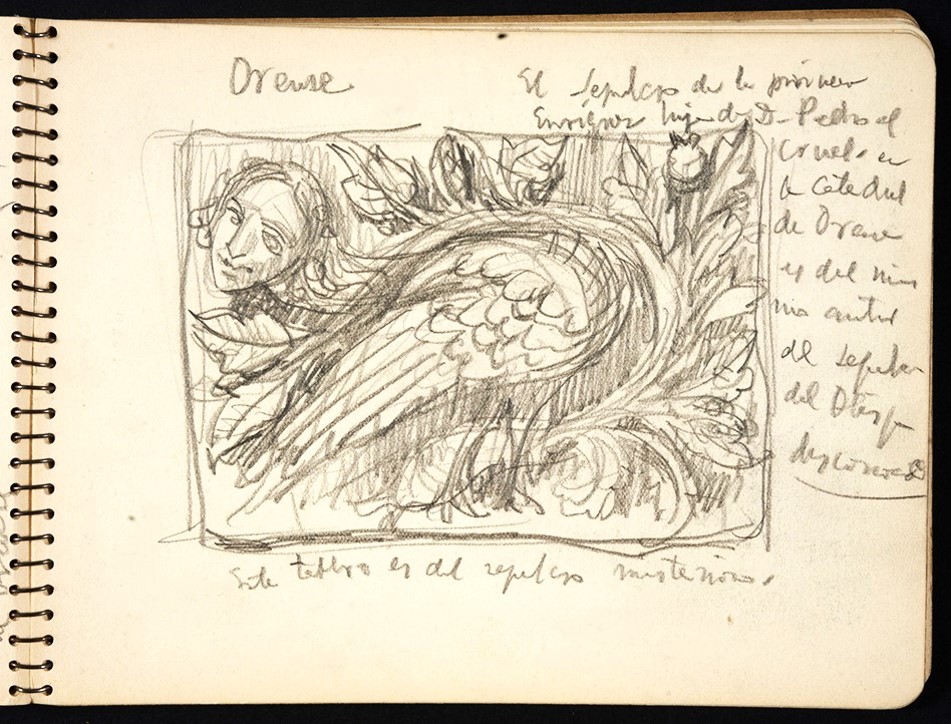 Orense
El sepulcro de la
hijo de D. Pedro el
Cruel en
la catedral
de Orense
es del mis
mo autor
del sepulcro
del Obispo
desconocido
Este tablero es del sepulcro misterioso